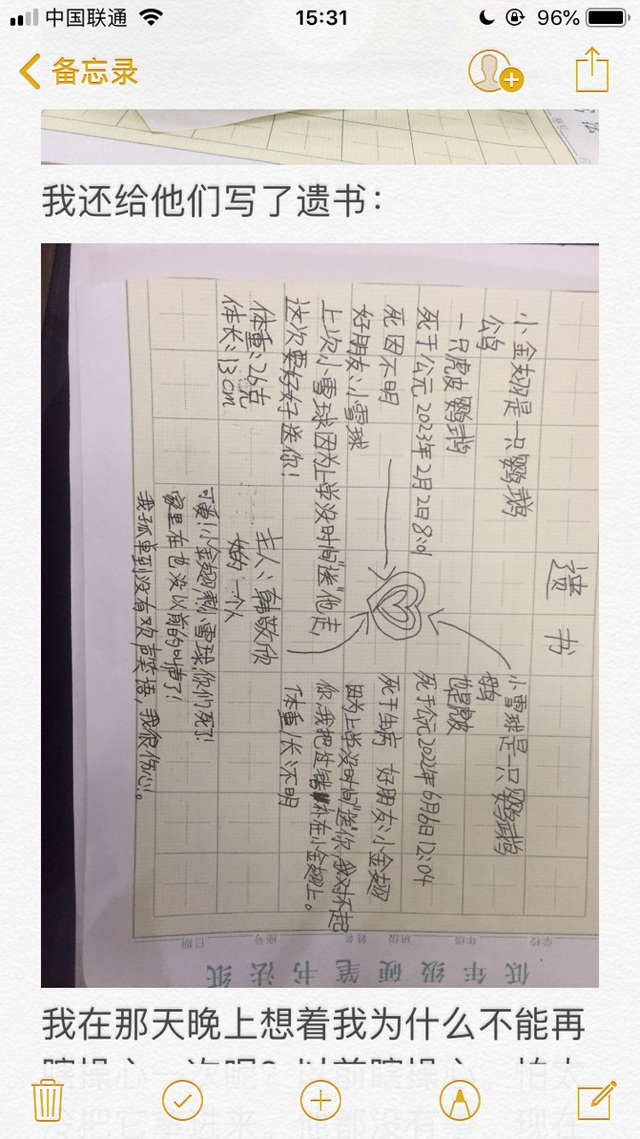 中国联通
15:31
96%
备忘录
我还给他们写了遗书：
遗书
小金翅是一只鹦鹉
公鸟
一只虎皮鹦鹉
死于公元2023年2月2日8:01
死因不明
好朋友:小雪球
上次小雪球因为上学没时间"送"他走
这次要好好送你!
体重:26克
体长:13cm
小雪球是一只鹦鹉
死于公元2022年6月6日12:04
死于生病 好朋友:小金翅
因为上学没时间"送"你,我对不起
你,我把补在小金翅上。
体重/长:不明
主人:韩敬欣
一个人
可爱!小金翅和小雪球,你们死了!
家里在也没以前的叫声了!
我孤单到没有欢声笑语,我很伤心。
低年级硬笔书法纸
学校 年级 班级 姓名 座号 日期
我在那天晚上想着我为什么不能再